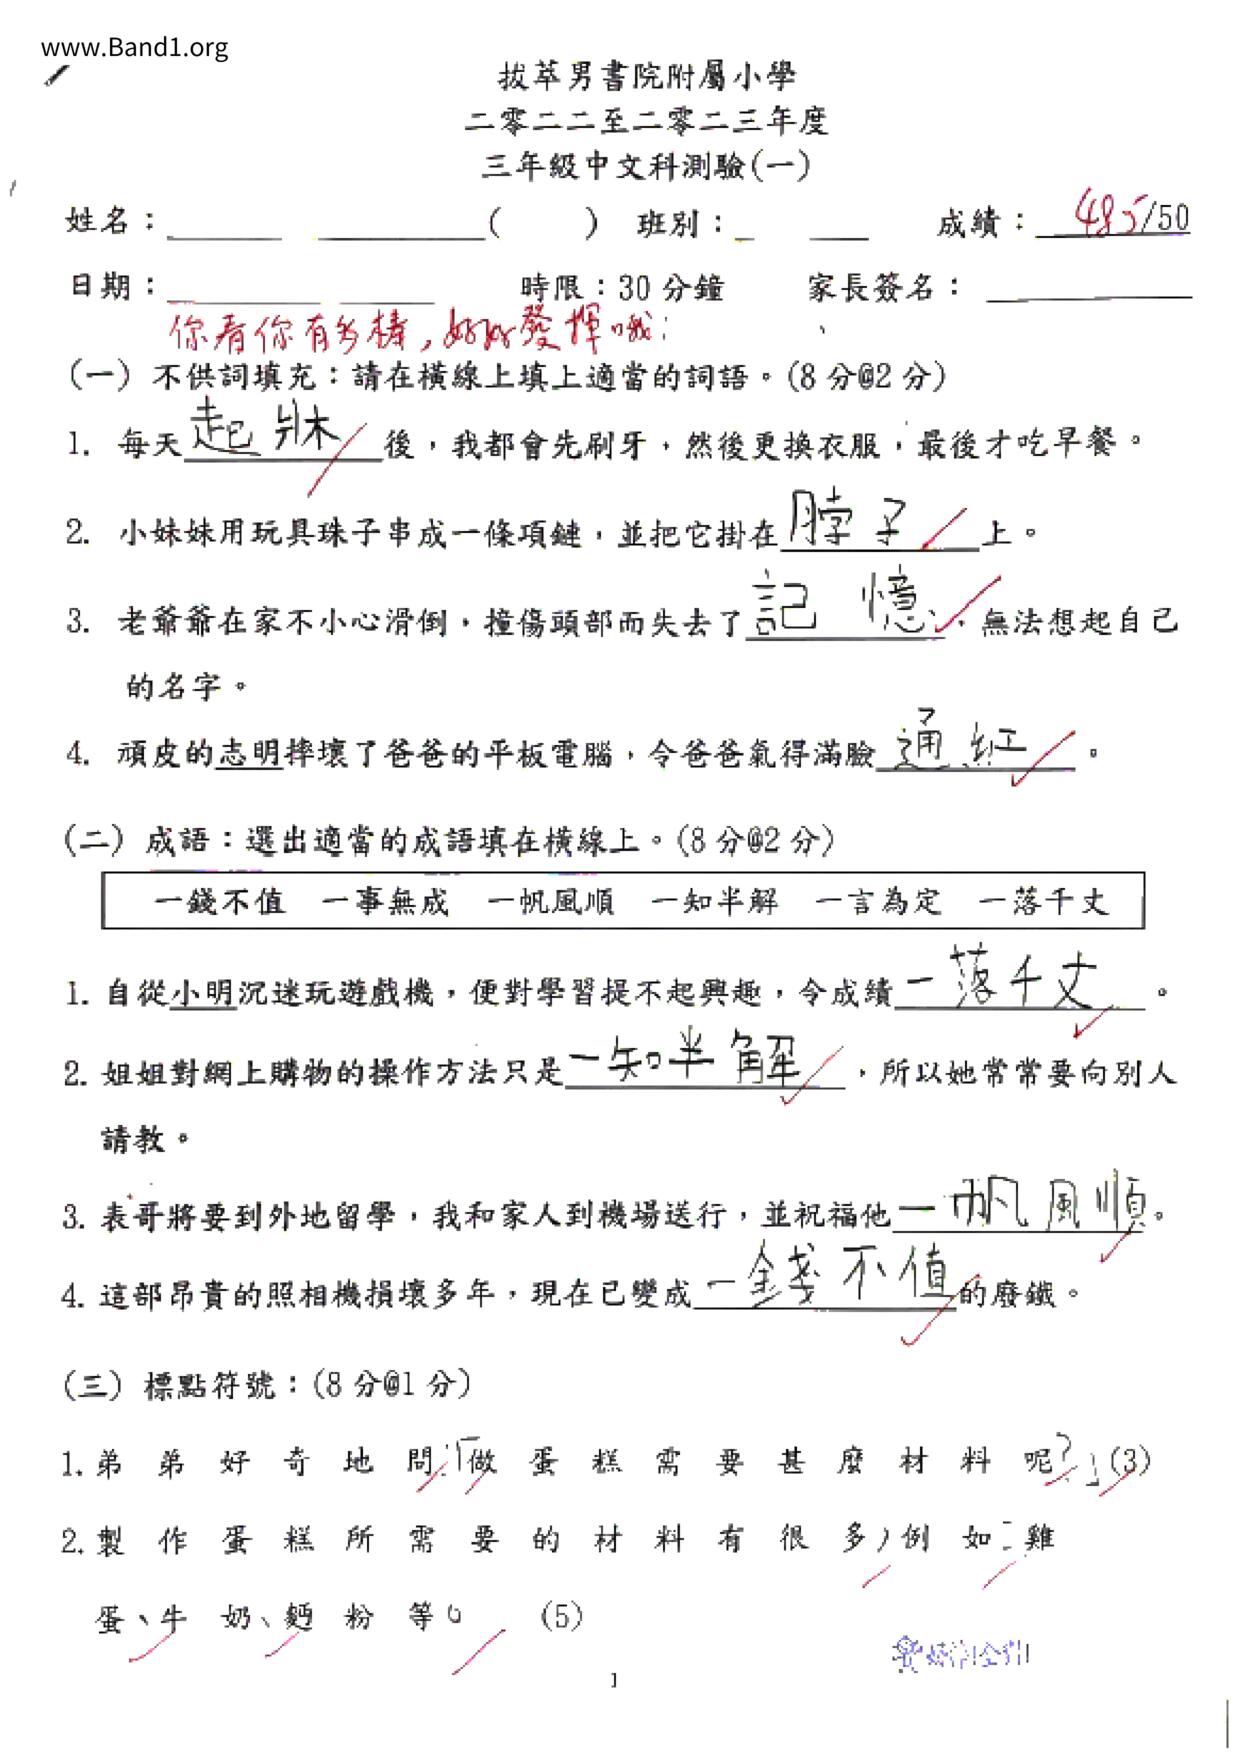 www.Band1.org
拔萃男書院附屬小學
二零二二至二零二三年度
三年級中文科測驗(一)
姓名：＿＿＿＿ ＿＿＿＿＿＿( ) 班別：＿ ＿＿ 成績：485/50
日期：＿＿＿＿＿ ＿＿＿ 時限：30分鐘 家長簽名：＿＿＿＿＿＿＿
你看你有多棒，好好發揮哦！
(一) 不供詞填充：請在橫線上填上適當的詞語。(8分@2分)
1. 每天起牀後，我都會先刷牙，然後更換衣服，最後才吃早餐。
2. 小妹妹用玩具珠子串成一條項鏈，並把它掛在脖子上。
3. 老爺爺在家不小心滑倒，撞傷頭部而失去了記憶，無法想起自己
的名字。
4. 頑皮的志明摔壞了爸爸的平板電腦，令爸爸氣得滿臉通紅。
(二) 成語：選出適當的成語填在橫線上。(8分@2分)
一錢不值 一事無成 一帆風順 一知半解 一言為定 一落千丈
1. 自從小明沉迷玩遊戲機，便對學習提不起興趣，令成績一落千丈。
2. 姐姐對網上購物的操作方法只是一知半解，所以她常常要向別人
請教。
3. 表哥將要到外地留學，我和家人到機場送行，並祝福他一帆風順。
4. 這部昂貴的照相機損壞多年，現在已變成一錢不值的廢鐵。
(三) 標點符號：(8分@1分)
1. 弟弟好奇地問：「做蛋糕需要甚麼材料呢？」(3)
2. 製作蛋糕所需要的材料有很多，例如：雞
蛋、牛奶、麵粉等。 (5)
1